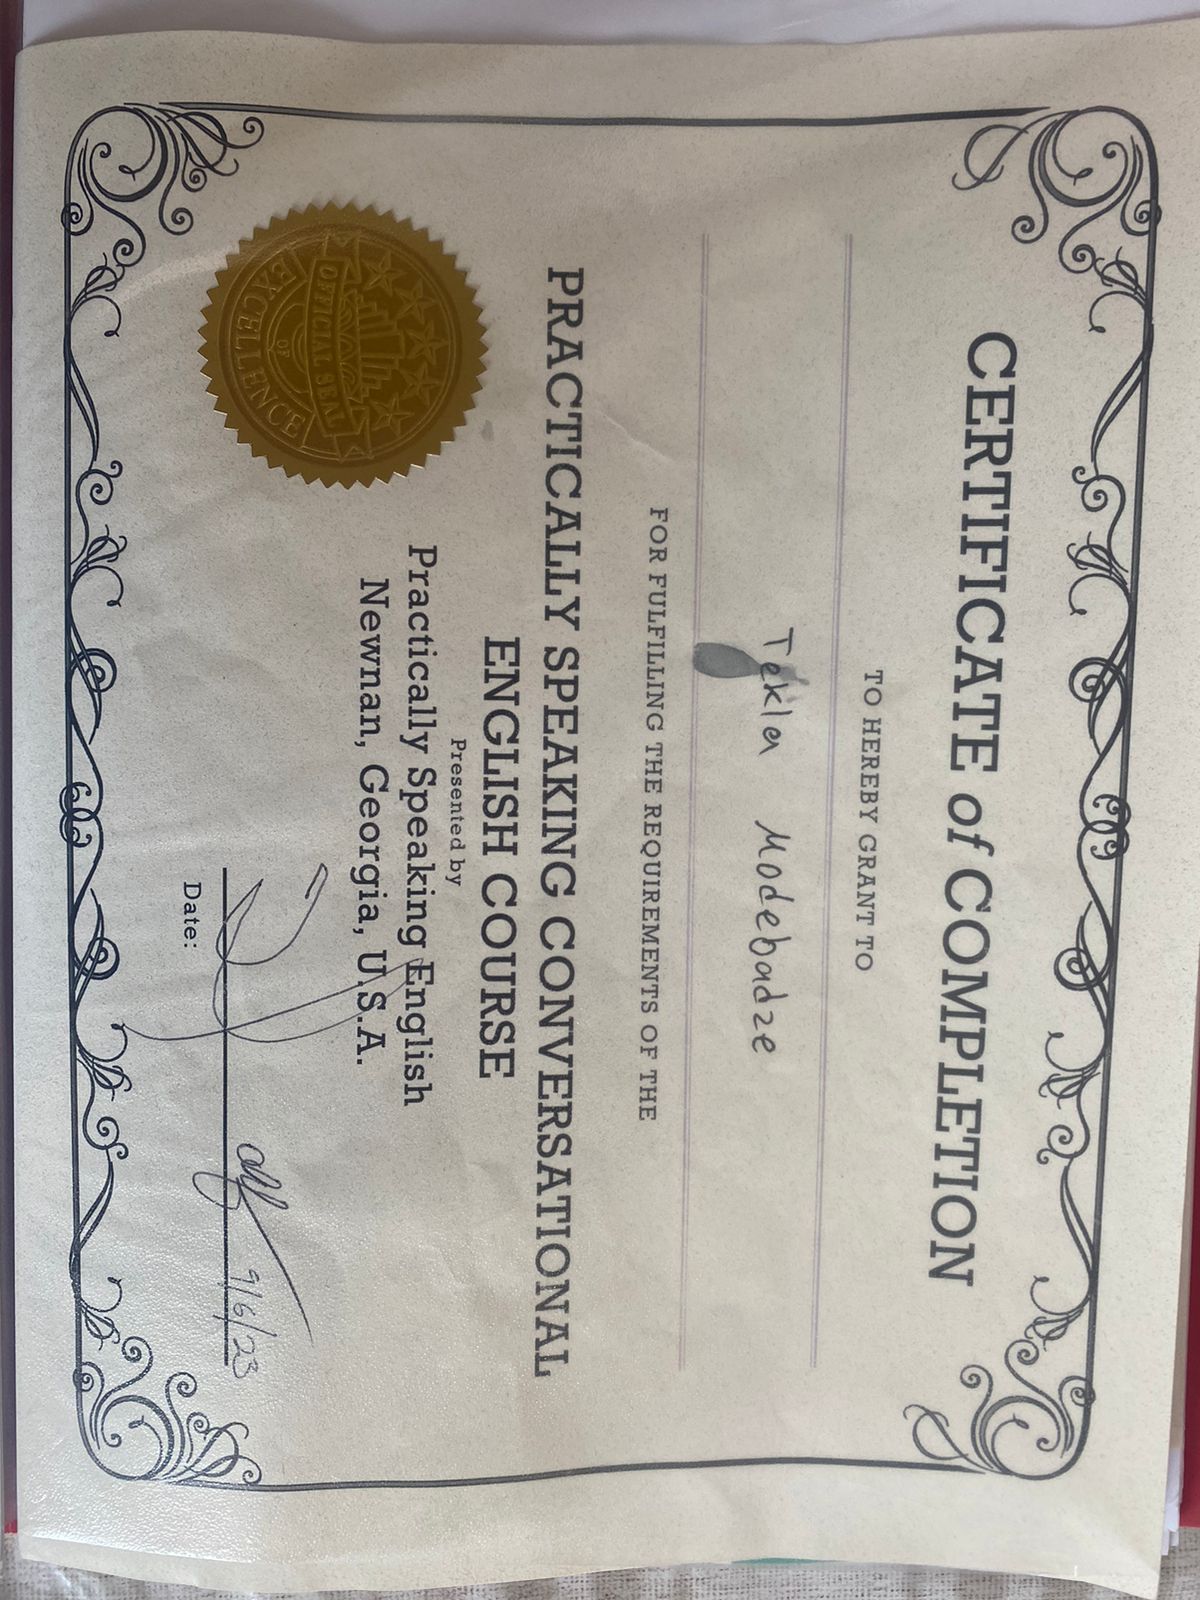 CERTIFICATE of COMPLETION
TO HEREBY GRANT TO
Tekla Modebadze
FOR FULFILLING THE REQUIREMENTS OF THE
PRACTICALLY SPEAKING CONVERSATIONAL
ENGLISH COURSE
Presented by
Practically Speaking English
Newnan, Georgia, U.S.A.
OFFICIAL SEAL
OF
EXCELLENCE
9/6/23
Date: